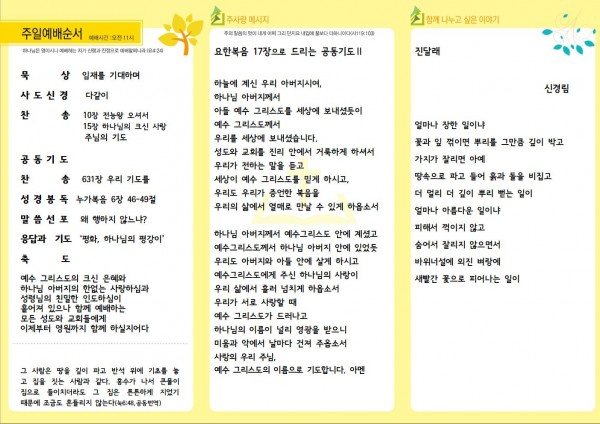 주일예배순서 예배시간 : 오전 11시
하나님은 영이시니 예배하는 자가 신령과 진정으로 예배할찌니라 (요4:24)
묵 상 임재를 기대하며
사 도 신 경 다같이
찬 송 10장 전능왕 오셔서
15장 하나님의 크신 사랑
주님의 기도
공 동 기 도
찬 송 631장 우리 기도를
성 경 봉 독 누가복음 6장 46-49절
말 씀 선 포 왜 행하지 않느냐?
응답과 기도 "평화, 하나님의 평강이"
축 도
예수 그리스도의 크신 은혜와
하나님 아버지의 한없는 사랑하심과
성령님의 친밀한 인도하심이
흩어져 있으나 함께 예배하는
모든 성도와 교회들에게
이제부터 영원까지 함께 하실지어다
그 사람은 땅을 깊이 파고 반석 위에 기초를 놓
고 집을 짓는 사람과 같다. 홍수가 나서 큰물이
집으로 들이치더라도 그 집은 튼튼하게 지었기
때문에 조금도 흔들리지 않는다(눅6:48,공동번역)
주사랑 메시지
주의 말씀의 맛이 내게 어찌 그리 단지요 내입에 꿀보다 더하니이다(시119:103)
요한복음 17장으로 드리는 공동기도Ⅱ
하늘에 계신 우리 아버지시여,
하나님 아버지께서
아들 예수 그리스도를 세상에 보내셨듯이
예수 그리스도께서
우리를 세상에 보내셨습니다.
성도와 교회를 진리 안에서 거룩하게 하셔서
우리가 전하는 말을 듣고
세상이 예수 그리스도를 믿게 하시고,
우리도 우리가 증언한 복음을
우리의 삶에서 열매로 만날 수 있게 하옵소서
하나님 아버지께서 예수그리스도 안에 계셨고
예수그리스도께서 하나님 아버지 안에 있었듯
우리도 아버지와 아들 안에 살게 하시고
예수그리스도에게 주신 하나님의 사랑이
우리 삶에서 흘러 넘치게 하옵소서
우리가 서로 사랑할 때
예수 그리스도가 드러나고
하나님의 이름이 널리 영광을 받으니
미움과 악에서 날마다 건져 주옵소서
사랑의 우리 주님,
예수 그리스도의 이름으로 기도합니다. 아멘
함께 나누고 싶은 이야기
진달래
신경림
얼마나 장한 일이냐
꽃과 잎 꺾이면 뿌리를 그만큼 깊이 박고
가지가 잘리면 아예
땅속으로 파고 들어 흙과 돌을 비집고
더 멀리 더 깊이 뿌리 뻗는 일이
얼마나 아름다운 일이냐
피해서 꺽이지 않고
숨어서 잘리지 않으면서
바위너설에 외진 벼랑에
새빨간 꽃으로 피어나는 일이